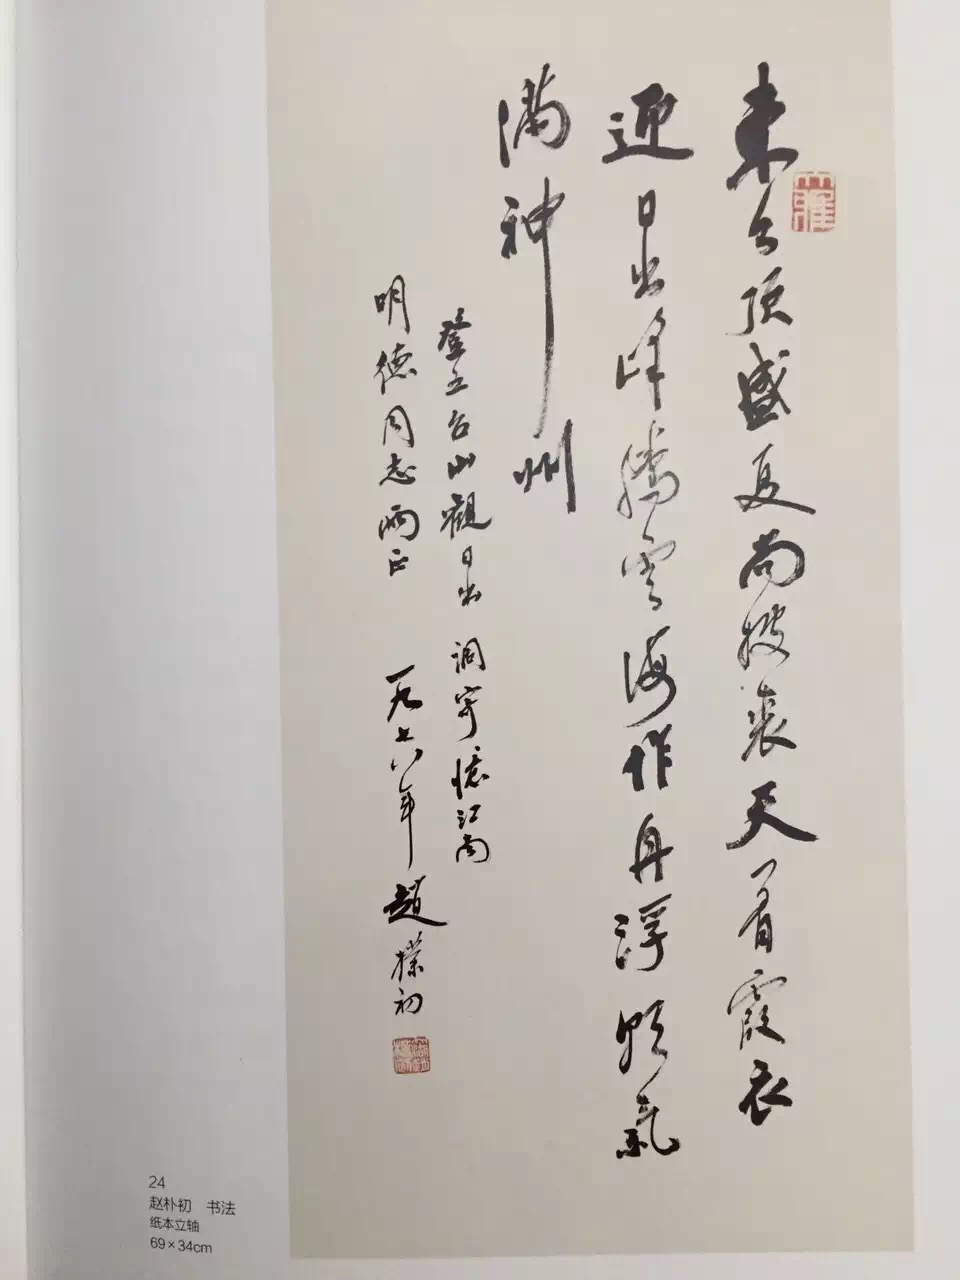 東台頂盛夏尚披裘天着霞衣
迎日出峰騰雲海作舟浮朝氣
滿神州
登五台山觀日出 調寄憶江南
明德同志兩正 一九七八年 趙樸初
24
赵朴初 书法
纸本立轴
69×34cm